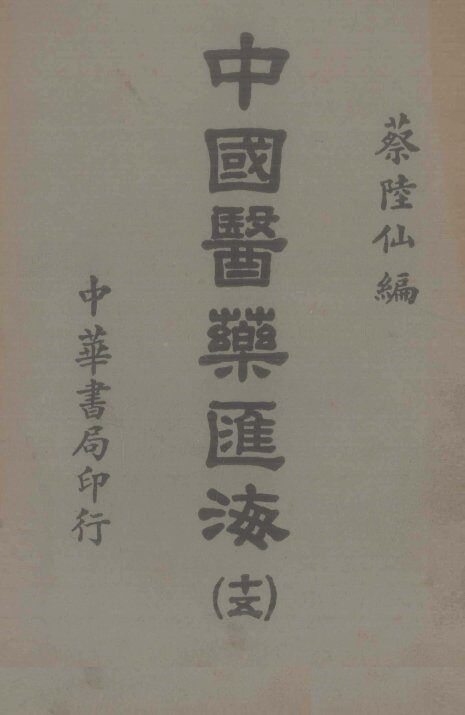 蔡陸仙編
中國醫藥匯海(十五)
中華書局印行